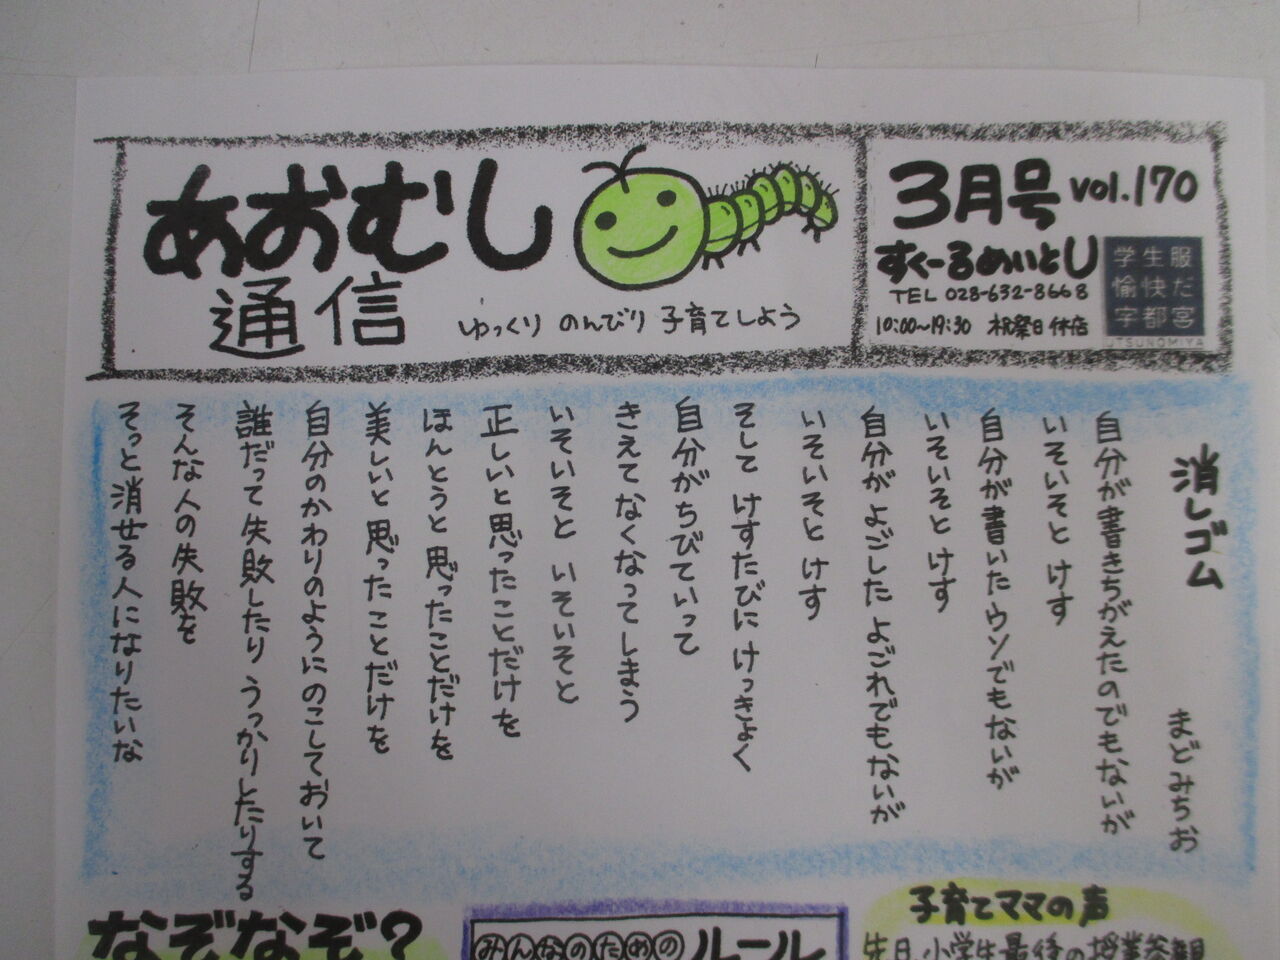 あおむし
通信
ゆっくり のんびり 子育てしよう
3月号 vol.170
すくーるめいとU
TEL 028-632-8668
10:00〜19:30 祝祭日休店
学生服
愉快だ
宇都宮
UTSUNOMIYA
消しゴム
まどみちお
自分が書きちがえたのでもないが
いそいそと けす
自分が書いたウソでもないが
いそいそと けす
自分が よごした よごれでもないが
いそいそと けす
そして けすたびに けっきょく
自分がちびていって
きえてなくなってしまう
いそいそと いそいそと
正しいと思ったことだけを
ほんとうと 思ったことだけを
美しいと 思ったことだけを
自分のかわりのように のこしておいて
誰だって 失敗したり うっかりしたりする
そんな人の失敗を
そっと 消せる人になりたいな
なぞなぞ?
みんなのための ルール
子育てママの声
先日、小学生最後の授業参観